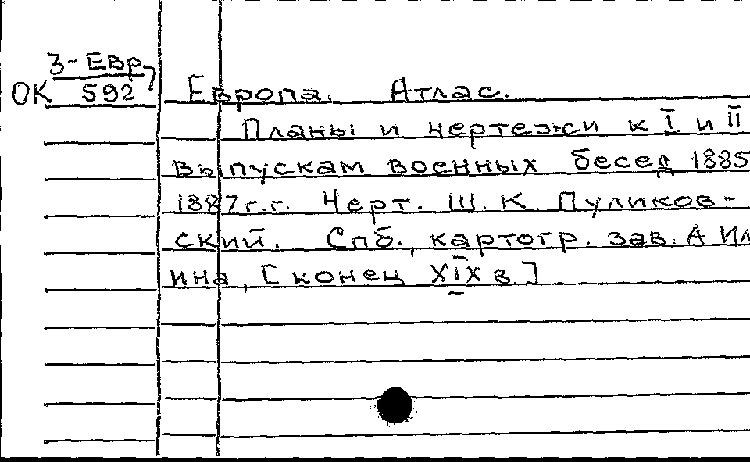 3-Евр
ОК 592
Европа. Атлас.
Планы и чертежи к I и II
выпускам военных бесед 1885
1887г.г. Черт. Ш. К. Пуликов-
ский. Спб., картогр. зав. А Ил
ина, [конец XIX в]